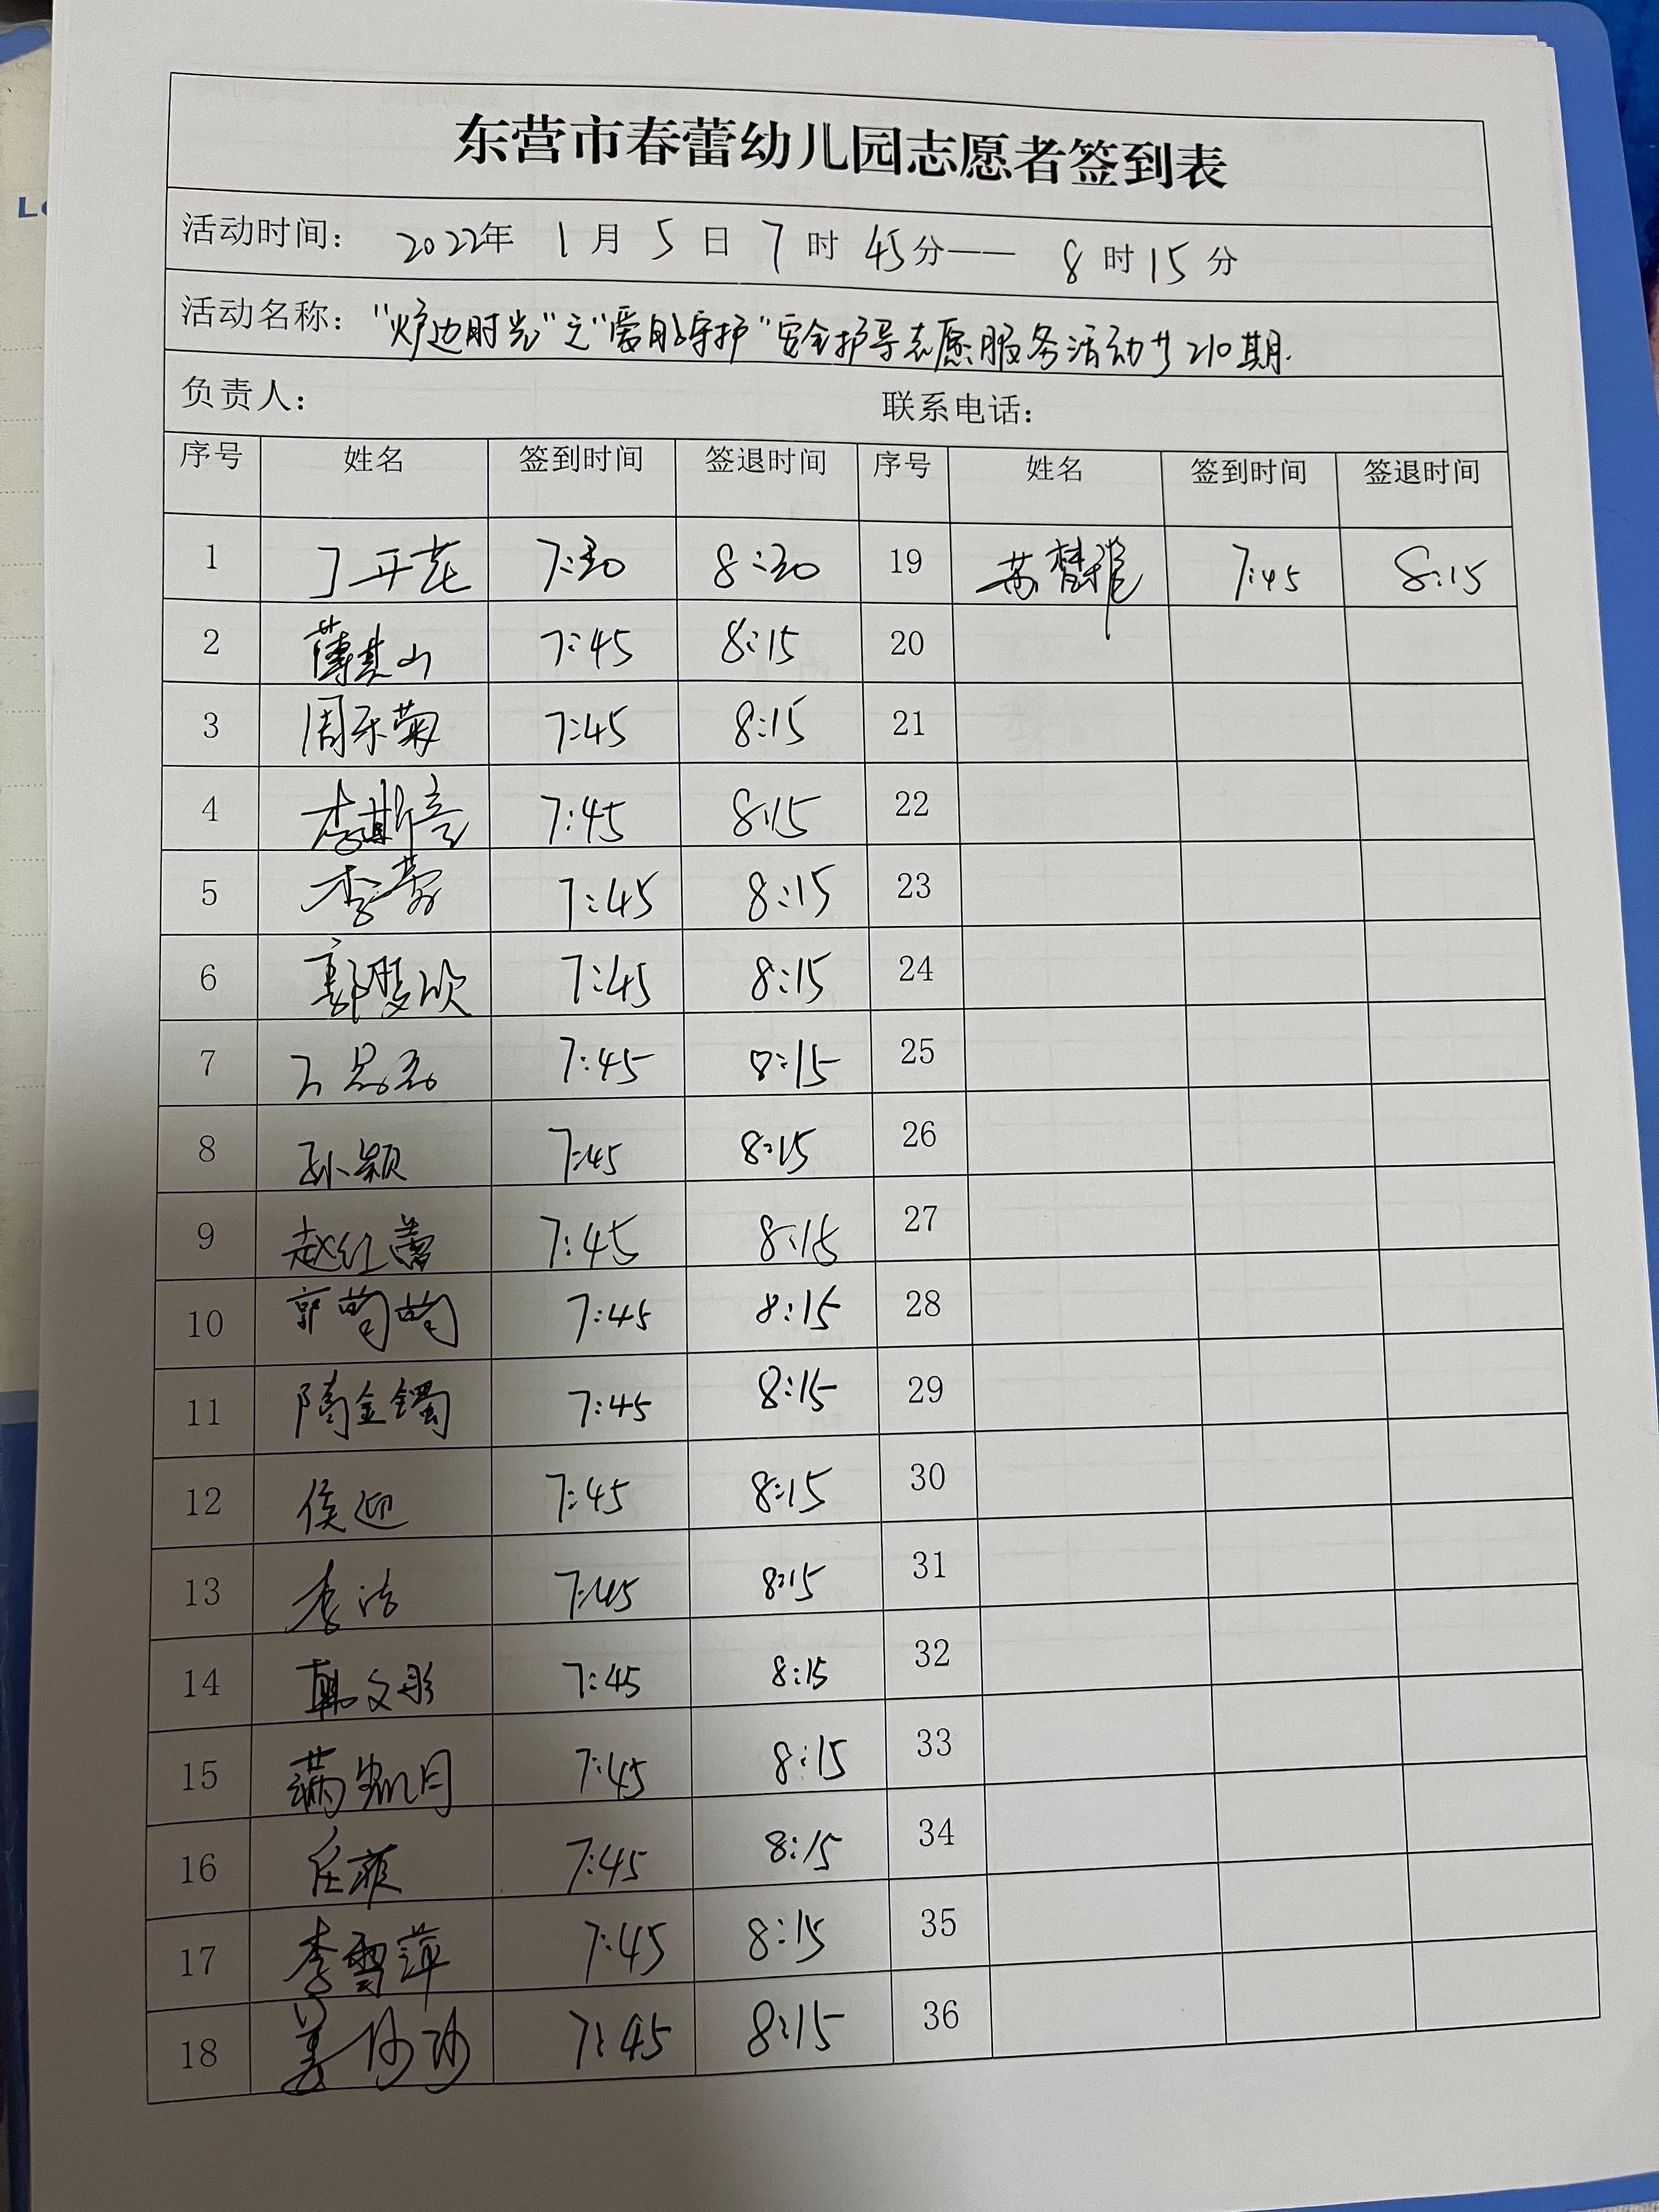 东营市春蕾幼儿园志愿者签到表
活动时间： 2022年 1月 5日 7时 45分—— 8时15分
活动名称："炉边时光"之"爱的守护"安全护导志愿服务活动 210期.
负责人： 联系电话：
序号 姓名 签到时间 签退时间 序号 姓名 签到时间 签退时间
1 丁开花 7:30 8:30 19 苏梦雅 7:45 8:15
2 薄其山 7:45 8:15 20
3 周乐菊 7:45 8:15 21
4 李斯 7:45 8:15 22
5 李 7:45 8:15 23
6 郭 欣 7:45 8:15 24
7 7:45 8:15 25
8 孙颖 7:45 8:15 26
9 赵红蕾 7:45 8:15 27
10 郭苟苟 7:45 8:15 28
11 陶金镯 7:45 8:15 29
12 侯迎 7:45 8:15 30
13 李洁 7:45 8:15 31
14 韩文彤 7:45 8:15 32
15 满 月 7:45 8:15 33
16 任菲 7:45 8:15 34
17 李雪萍 7:45 8:15 35
18 姜沙沙 7:45 8:15 36